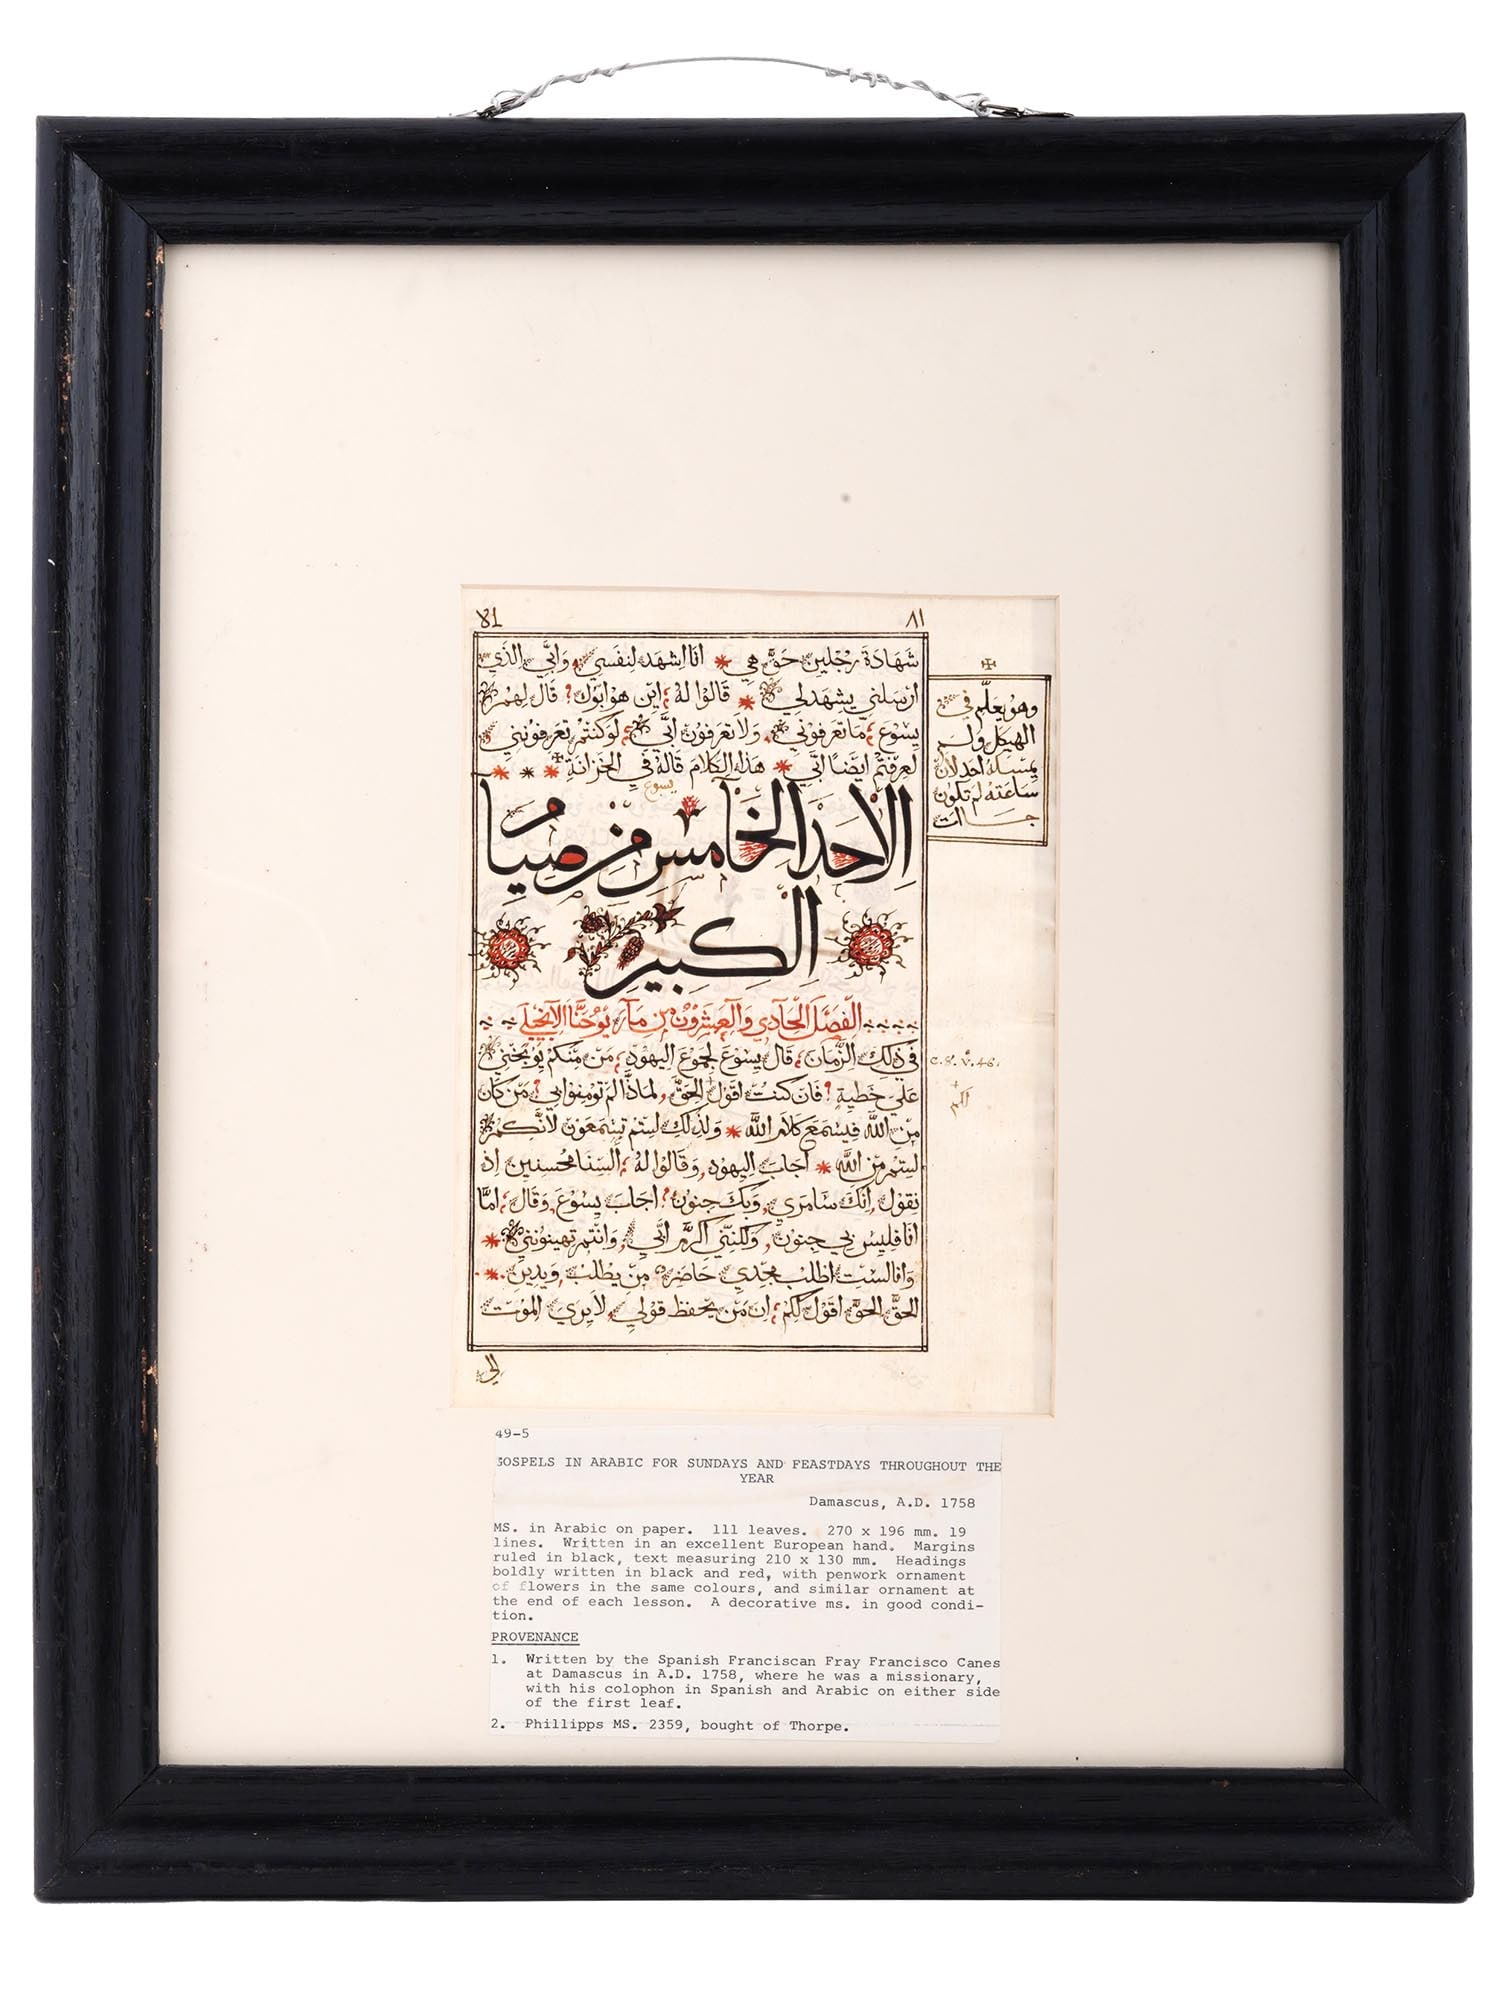 81
٨١
شهادة رجلين حق هي * انا اشهد لنفسي وابي الذي
ارسلني يشهد لي * قالوا له اين هو ابوك؟ قال لهم
يسوع ما تعرفوني ولا تعرفون ابي لو كنتم تعرفونني
لعرفتم ايضا ابي * هذا الكلام قاله في الخزانة
يسوع
وهو يعلم في
الهيكل ولم
يمسكه احد لان
ساعته لم تكون
جاات
الاحد الخامس من صيام
الكبير
الفصل الحادي والعشرون من مار يوحنا الانجيلي
في ذلك الزمان قال يسوع لجموع اليهود من منكم يوبخني
c. 8. v. 46.
علي خطية؟ فان كنت اقول الحق لماذا لم تومنوا بي؟ من كان
لكم
من الله فيسمع كلام الله * ولذلك لستم تستمعون لانكم
لستم من الله * اجاب اليهود وقالوا له السنا محسنين اذ
نقول انك سامري وبك جنون؟ اجاب يسوع وقال اما
انا فليس بي جنون ولكنني اكرم ابي وانتم تهينونني *
وانا لست اطلب مجدي حاضر من يطلب ويدين *
الحق الحق اقول لكم ان من يحفظ قولي لا يري الموت
الي
49-5
GOSPELS IN ARABIC FOR SUNDAYS AND FEASTDAYS THROUGHOUT THE
YEAR
Damascus, A.D. 1758
MS. in Arabic on paper. 111 leaves. 270 x 196 mm. 19
lines. Written in an excellent European hand. Margins
ruled in black, text measuring 210 x 130 mm. Headings
boldly written in black and red, with penwork ornament
of flowers in the same colours, and similar ornament at
the end of each lesson. A decorative ms. in good condi-
tion.
PROVENANCE
1. Written by the Spanish Franciscan Fray Francisco Canes
at Damascus in A.D. 1758, where he was a missionary,
with his colophon in Spanish and Arabic on either side
of the first leaf.
2. Phillipps MS. 2359, bought of Thorpe.